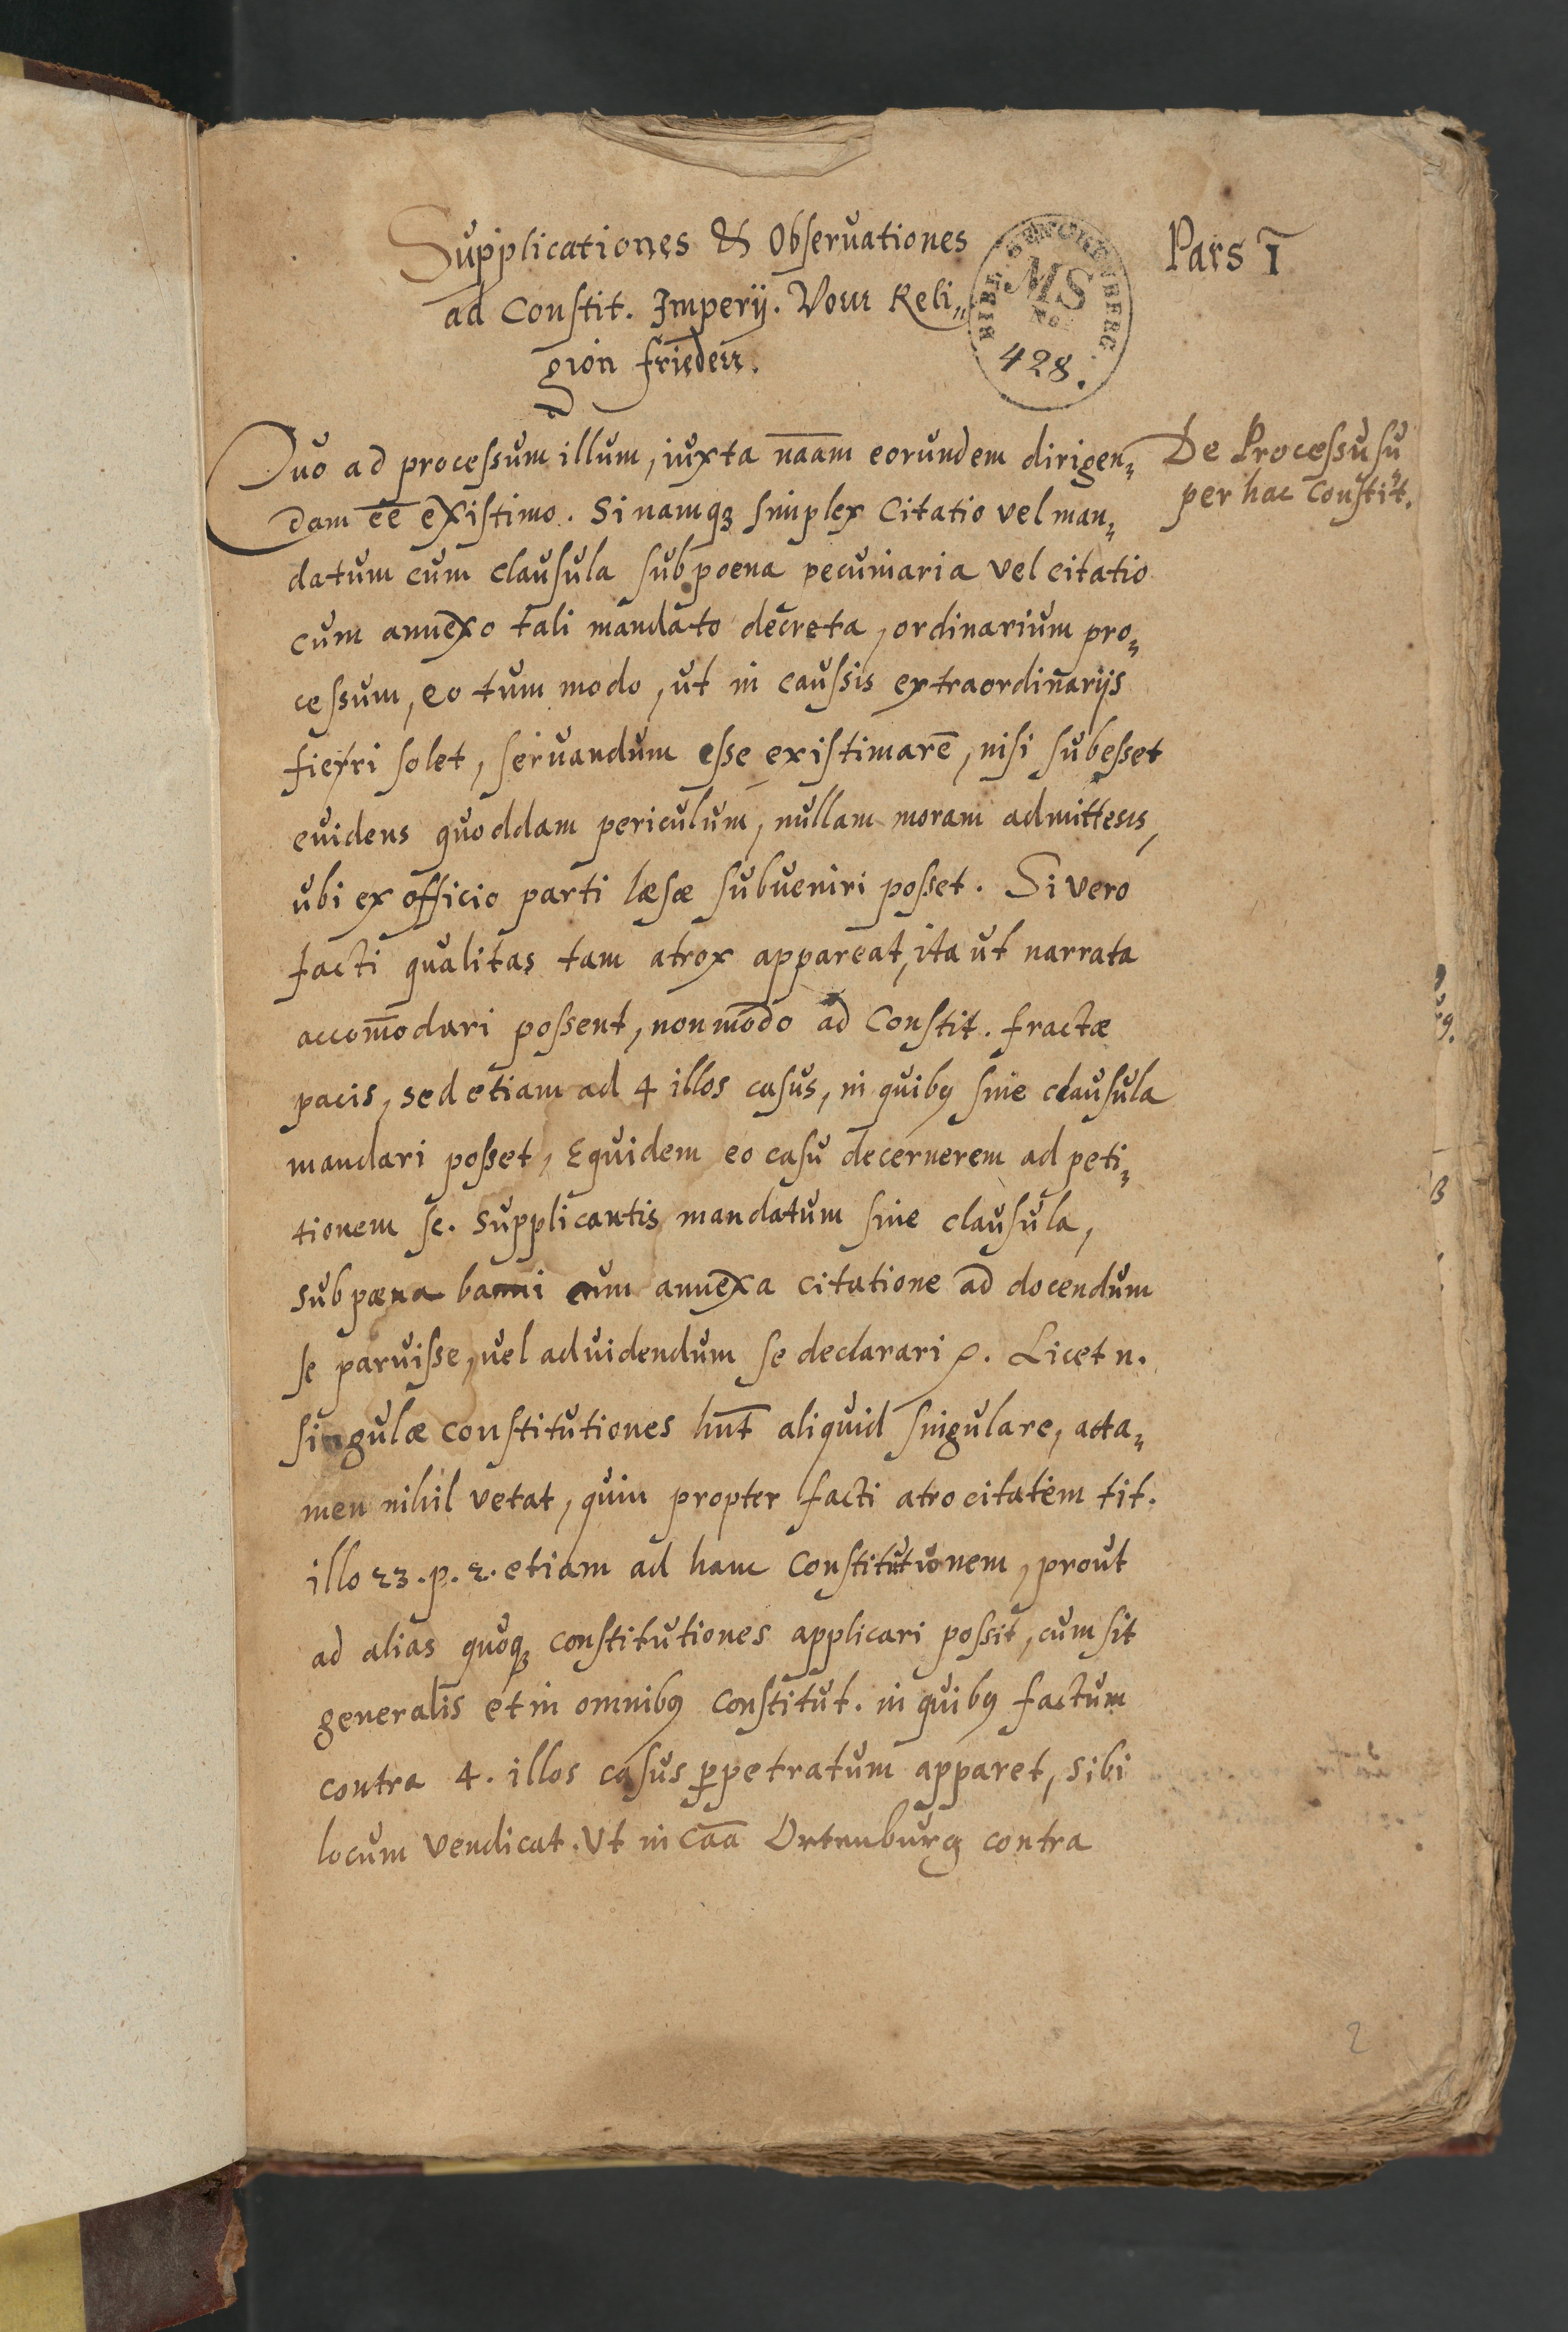 Supplicationes & Observationes
ad Constit. Imperij. Vom Reli„
gion frieden.
Pars I
BIBL. SENCKENBERG.
MS
No.
428.
De Processu su
per hac Constit.
Quo ad processum illum, iuxta naam eorundem dirigen„
dam ee existimo. Si namq3 simplex Citatio vel man„
datum cum clausula sub poena pecuniaria vel citatio
cum annexo tali mandato decreta, ordinarium pro„
cessum, eo tum modo, ut in caussis extraordinarijs
fieri solet, servandum esse existimarē, nisi subesset
evidens quoddam periculum, nullam moram admittens,
ubi ex officio parti læsæ subueniri posset. Si vero
facti qualitas tam atrox appareat, ita ut narrata
accom̄odari possent, non modo ad Constit. fractæ
pacis, sed etiam ad 4 illos casus, in quibus sine clausula
mandari posset, Equidem eo casu decernerem ad peti„
tionem sc. supplicantis mandatum sine clausula,
sub pæna banni cum annexa citatione ad docendum
se paruisse, vel ad videndum se declarari p. Licet n.
singulæ constitutiones hnt̄ aliquid singulare, atta„
men nihil vetat, quin propter facti atrocitatem tit.
illo 23. p. 2. etiam ad hanc Constitutionem, prout
ad alias quoq3 constitutiones applicari possit, cum sit
generalis et in omnibus constitut. in quibus factum
contra 4. illos casus ꝑpetratum apparet, sibi
locum vendicat. Ut in caā Ortenburg contra
2